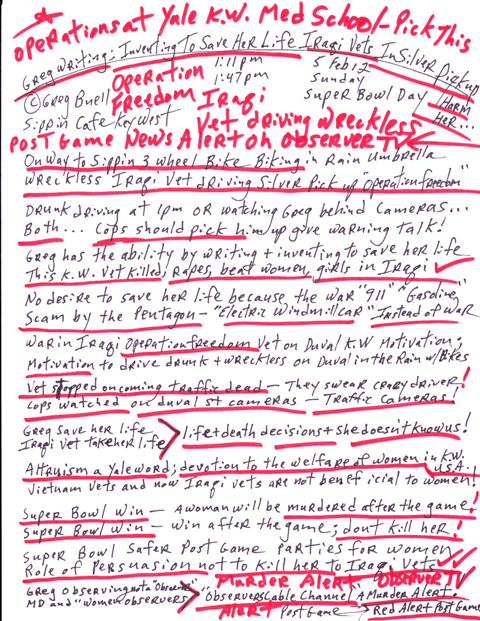 Operations at Yale K.W. Med School - Pick This
Greg Writing; Inventing To Save Her Life Iraqi Vets In Silver Pickup
1:11pm 5 Feb 12
Operation 1:47pm Sunday
© Greg Buell Freedom Iraqi Super Bowl Day Harm
Sippin Cafe Key West Vet driving wreckless Her...
Post Game News Alert on Observer TV
On way to Sippin 3 wheel Bike Biking in Rain Umbrella
wreckless Iraqi Vet driving Silver Pick up "operation freedom"
Drunk driving at 1pm or watching Greg behind Cameras...
Both... Cops should pick him up give warning talk!
Greg has the ability by writing + inventing to save her life
This K.W. Vet killed, Rapes, beat women, girls in Iraqi
No desire to save her life because the war "911" "Gasoline"
Scam by the Pentagon - "Electric Windmillcar" Instead of war
War in Iraqi Operationfreedom Vet on Duval K.W Motivation;
Motivation to drive drunk + wreckless on Duval in the Rain w/Bikes
Vet stopped oncoming traffic dead - They swear crazy driver!
Cops watched on duval st cameras - Traffic Cameras!
Greg save her life
Iraqi Vet take her life > life + death decisions + she doesn't know us!
Altruism a Yale word; devotion to the welfare of women in K.W.
U.S.A.!
Vietnam Vets and now Iraqi vets are not beneficial to women!
Super Bowl Win - A woman will be murdered after the game!
Super Bowl Win - Win after the game; don't kill her!
Super Bowl Safer Post Game Parties for women
Role of Persuasion not to kill her to Iraqi Vets
Greg Observing not a "Observer" Murder Alert Observer TV
MD and "women observers" > "Observers Cable Channel" A Murder Alert!
Alert Post Game > Red Alert Post Game!